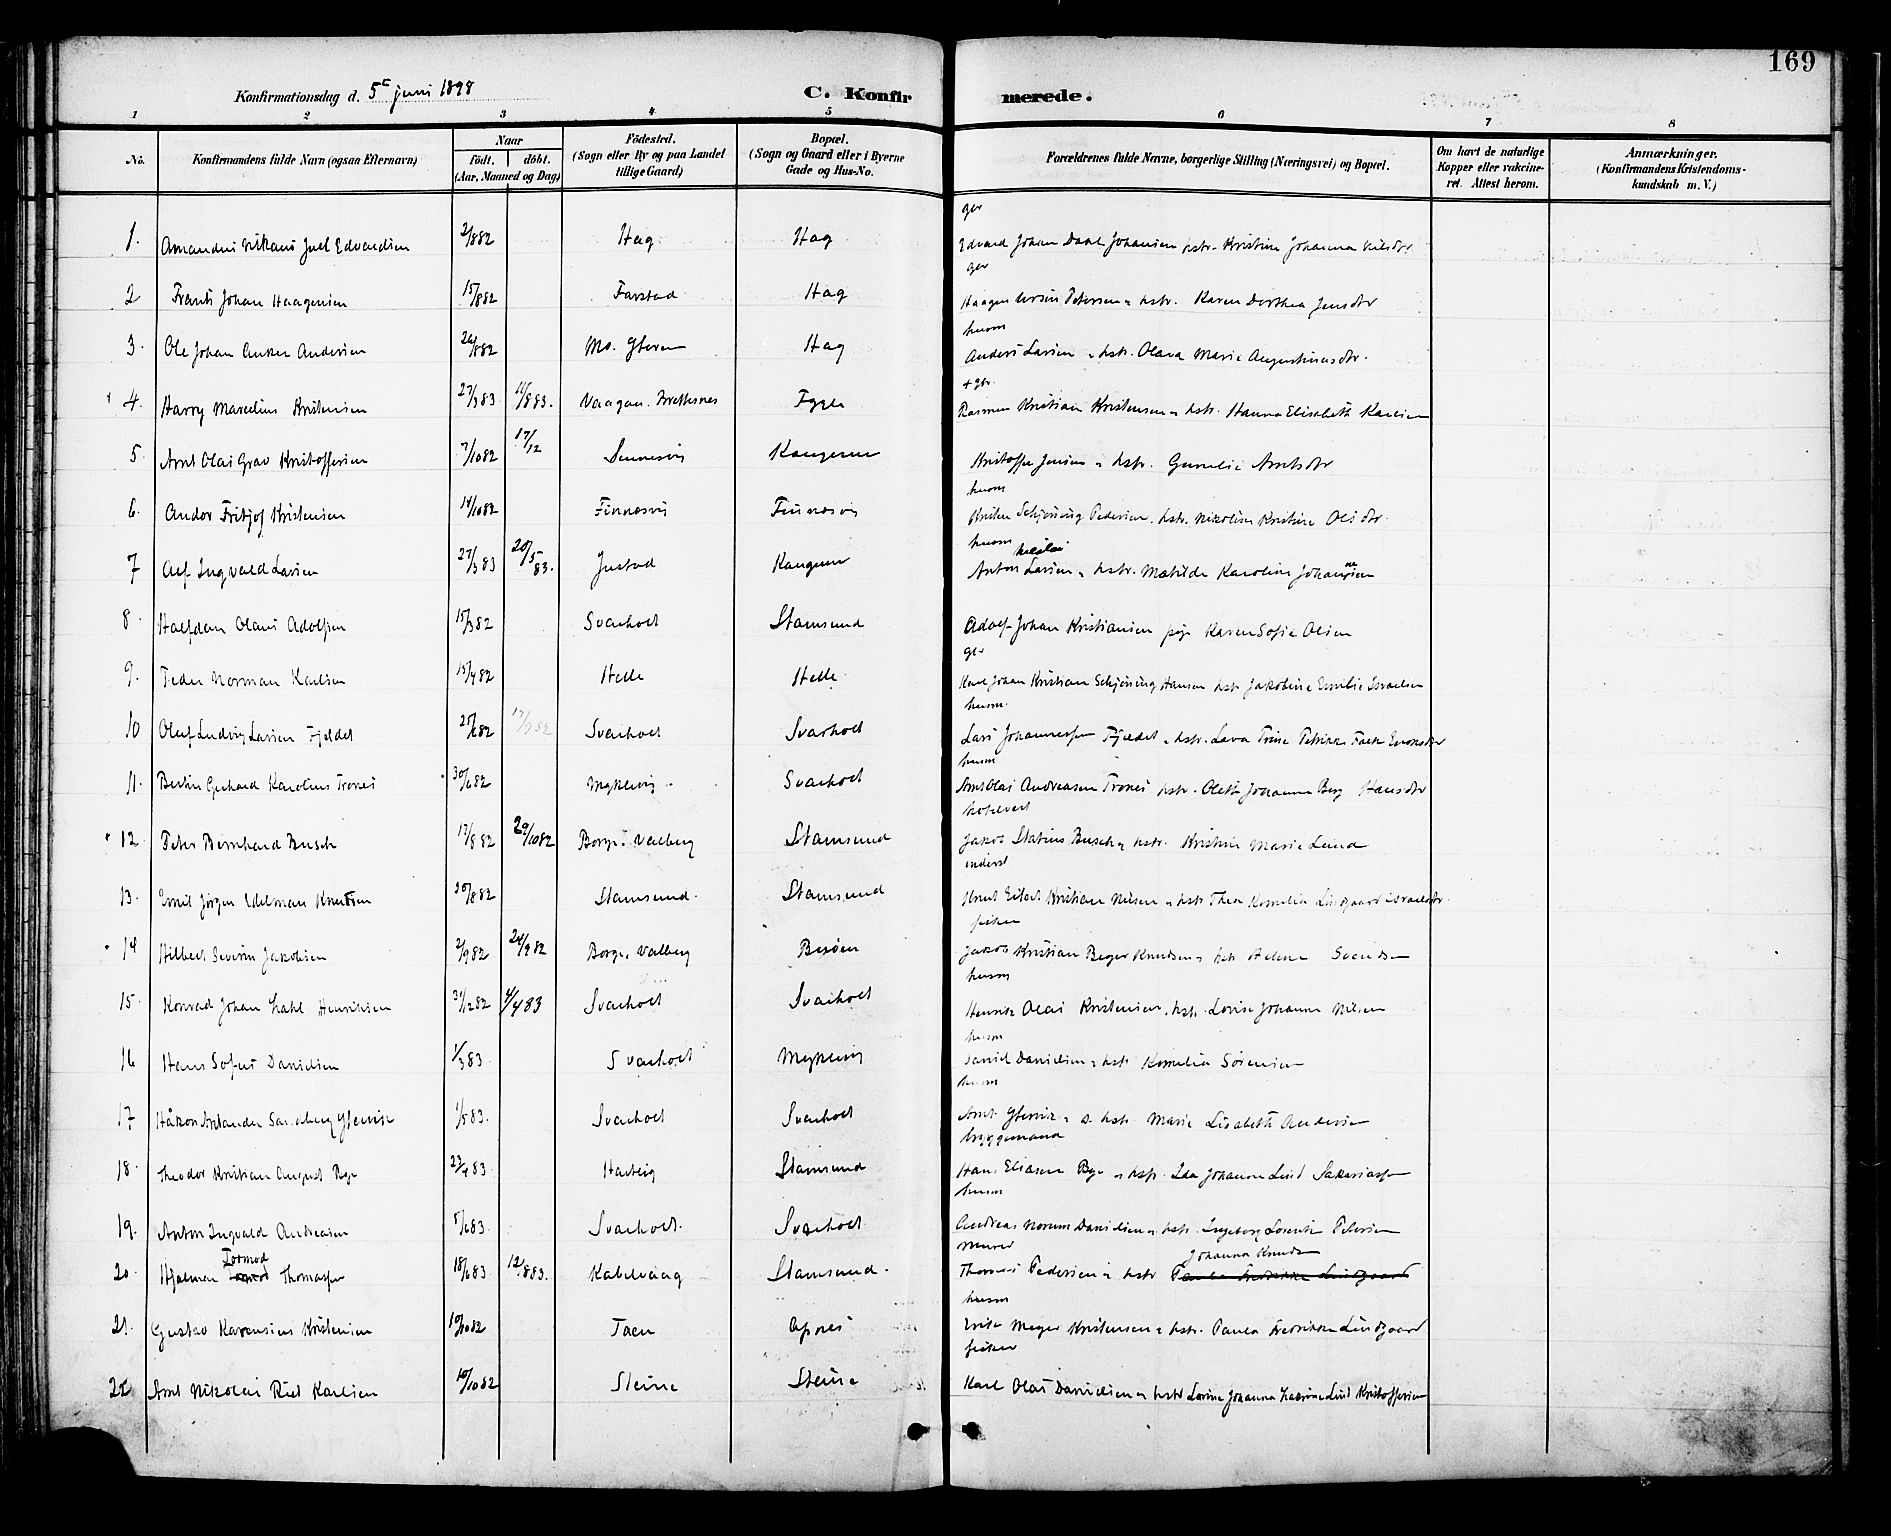 169
Konfirmationsdag d. 5te juni 1898
C. Konfirmerede.
1 2 3 4 5 6 7 8
No. Konfirmandens fulde Navn (ogsaa Efternavn) Naar født. døbt. (Aar, Maaned og Dag) Fødested. (Sogn eller By og paa Landet tillige Gaard) Bopæl. (Sogn og Gaard eller i Byerne Gade og Hus-No. Forældrenes fulde Navne, borgerlige Stilling (Næringsvei) og Bopæl. Om havt de naturlige Kopper eller vakcineret. Attest herom. Anmærkninger. (Konfirmandens Kristendomskundskab m. V.)
gbr
1. Edvardsen 2/8 82 Hag Hag Edvard Johan Dahl Johansen hstr. Kristine Johanna
gbr
2 Frants Johan Haagensen 15/8 82 Farstad Hag Haagen Petersen & hstr. Karen Dorthea Jensdtr
husm
3. Ole Johan Anker Andersen 26/8 82 Hag Anders Larsen & hstr. Olava Marie Augustinusdtr.
+ gbr.
4. Harry Marelius Kristensen 27/3 83 11/8 83. Vaagan. Brettesnes Fygle Rasmus Kristian Kristensen & hstr. Hanna Elisabeth Karlsen
5. Arnt Olai Grav Kristoffersen 7/10 82 17/12 Sennesvig Kangerur Kristoffer Jensen & hstr. Arntsdtr
husm
6. Andor Fritjof Kristensen 14/10 82 Finnesvig Finnesvig Schjöning Pedersen. hstr. Nikoline Kristine Olsdtr.
husm
7 Alf Ingvald Larsen 27/3 83 20/5 83. Justad Anton Nikolai Larsen & hstr. Matilde Karoline Johansen
8. Halfdan Olaus Adolfsen 15/3 82 Svarholt Stamsund Adolf Johan Kristiansen pige Karen Sofie Olsen
gbr
9. Peder Norman Karlsen 15/4 82 Helle Helle Karl Johan Kristian Schjöning Hansen hstr Jakobine Emilie Israelsen
husm.
10 Oluf Ludvig Larsen Fjeldet 25/ 82 Svarholt Svarholt Lars Johannessen Fjeldet & hstr. Lava Trine Petrikke Falk
husm
11. Gerhard Karolius Trones 30/6 82 Myklevig Svarholt Arnt Olai Andreasen Trones hstr. Oleth Johanna Berg Hansdtr
hotelvert
12. Peter Bernhard Busch 17/8 82 29/10 82 Borge: Valberg Stamsund Jakob Statius Busch & hstr. Kristine Marie Lund
inderst
13. Emil Jörgen Edelman Knutsen 30/8 82 Stamsund. Stamsund Knut Eilert Kristian Nilsen & hstr Thea Kornelia Lindgaard Israelsdtr.
fisker
14 Hilbert Severin Jakobsen 2/9 82 24/9 82 Borge, Valberg Jakob Kristian Knudsen & hstr Helene Svendsen
husm
15. Konrad Johan Henriksen 31/12 82 4/4 83 Svarholt Svarholt Henrik Olai Kristensen. hstr. Lovise Johanna Nilsen
husm
16 Hans Sofus Danielsen 1/3 83 Svarholt Myklevig Daniel Danielsen & hstr Kornelia Sörensen
husm
17 Håkon 1/5 83. Svarholt Svarholt Arnt & hstr Marie Lisabeth Andersen
bryggemand
18. Theodor Kristian August Bye 23/4 83. Hartvig Stamsund Hans Eliasen Bye & hstr. Ida Johanna Lind Sakariassen
husm
19. Anton Ingvald Andreasen 5/6 83. Svarholt. Svarholt Andreas Norum Danielsen & hstr. Ingeborg Lorentse Petersen
murer Johanna Knudsen
20. Hjalmar Tormod Thomassen 18/6 83 12/8 83. Kabelvaag Stamsund. Thomas Pedersen & hstr Paula Fredrikke Lindgaard
husm
21. Gustav Karensius Kristensen 10/10 82 Taen Meyer Kristensen & hstr. Paula Fredrikke Lindgaard
fisker
22 Arnt Nikolai Riel Karlsen 10/10 82 Steine Steine Karl Olai Danielsen & hstr Lovise Johanna Lind Kristoffersen